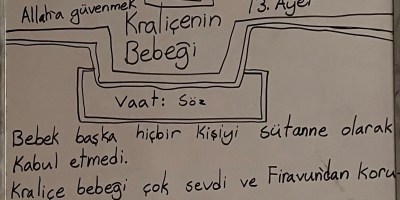 Allah'a güvenmek
13. Ayet
Kraliçenin
Bebeği
Vaat: Söz
Bebek başka hiçbir kişiyi sütanne olarak
Kabul etmedi.
Kraliçe bebeği çok sevdi ve Firavundan koru-